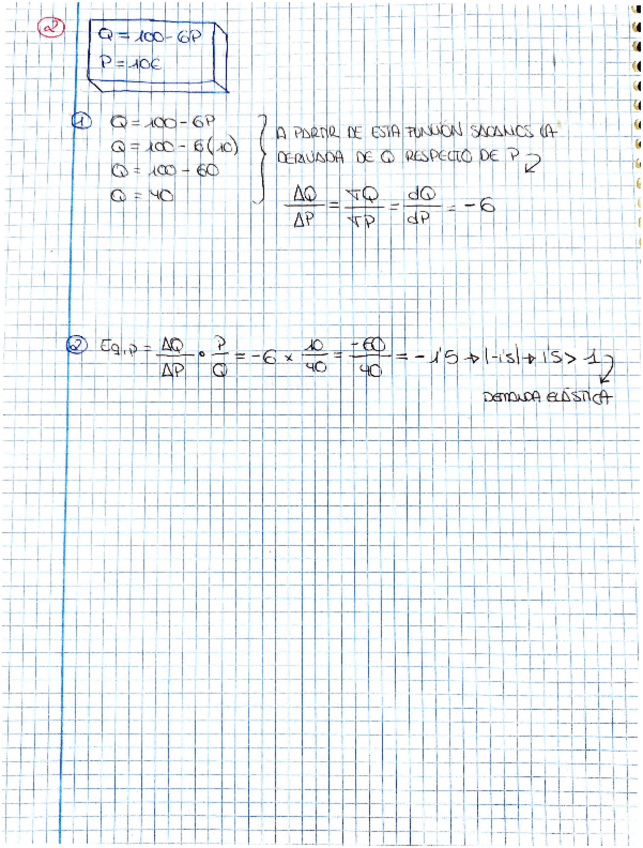 2
Q = 100 - 6P
P = 10€
1 Q = 100 - 6P
Q = 100 - 6(10)
Q = 100 - 60
Q = 40
A PARTIR DE ESTA FUNCIÓN SACAMOS LA
DERIVADA DE Q RESPECTO DE P
ΔQ/ΔP = ∇Q/∇P = dQ/dP = -6
2 Eq,p = ΔQ/ΔP • P/Q = -6 × 10/40 = -60/40 = -1'5 → |-1'5| → 1'5 > 1
DEMANDA ELÁSTICA